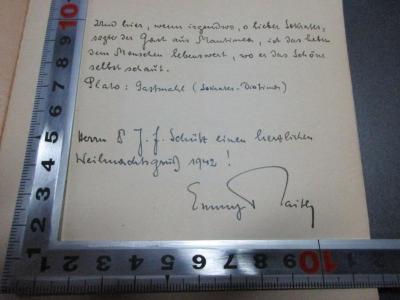 Und hier, wenn irgendwo, o lieber Sokrates,
sagte der Gast aus Mantinea, ist das Leben
dem Menschen lebenswert, wo er das Schöne
selbst schaut.
Plato: Gastmahl (Sokrates-Diotima)
Herrn J. F. Schütz einen herzlichen
Weihnachtsgruß 1942!
10
11
10
9
8
7
6
5
4
3
2
1
1
2
3
4
5
6
7
8
9
10
11
12